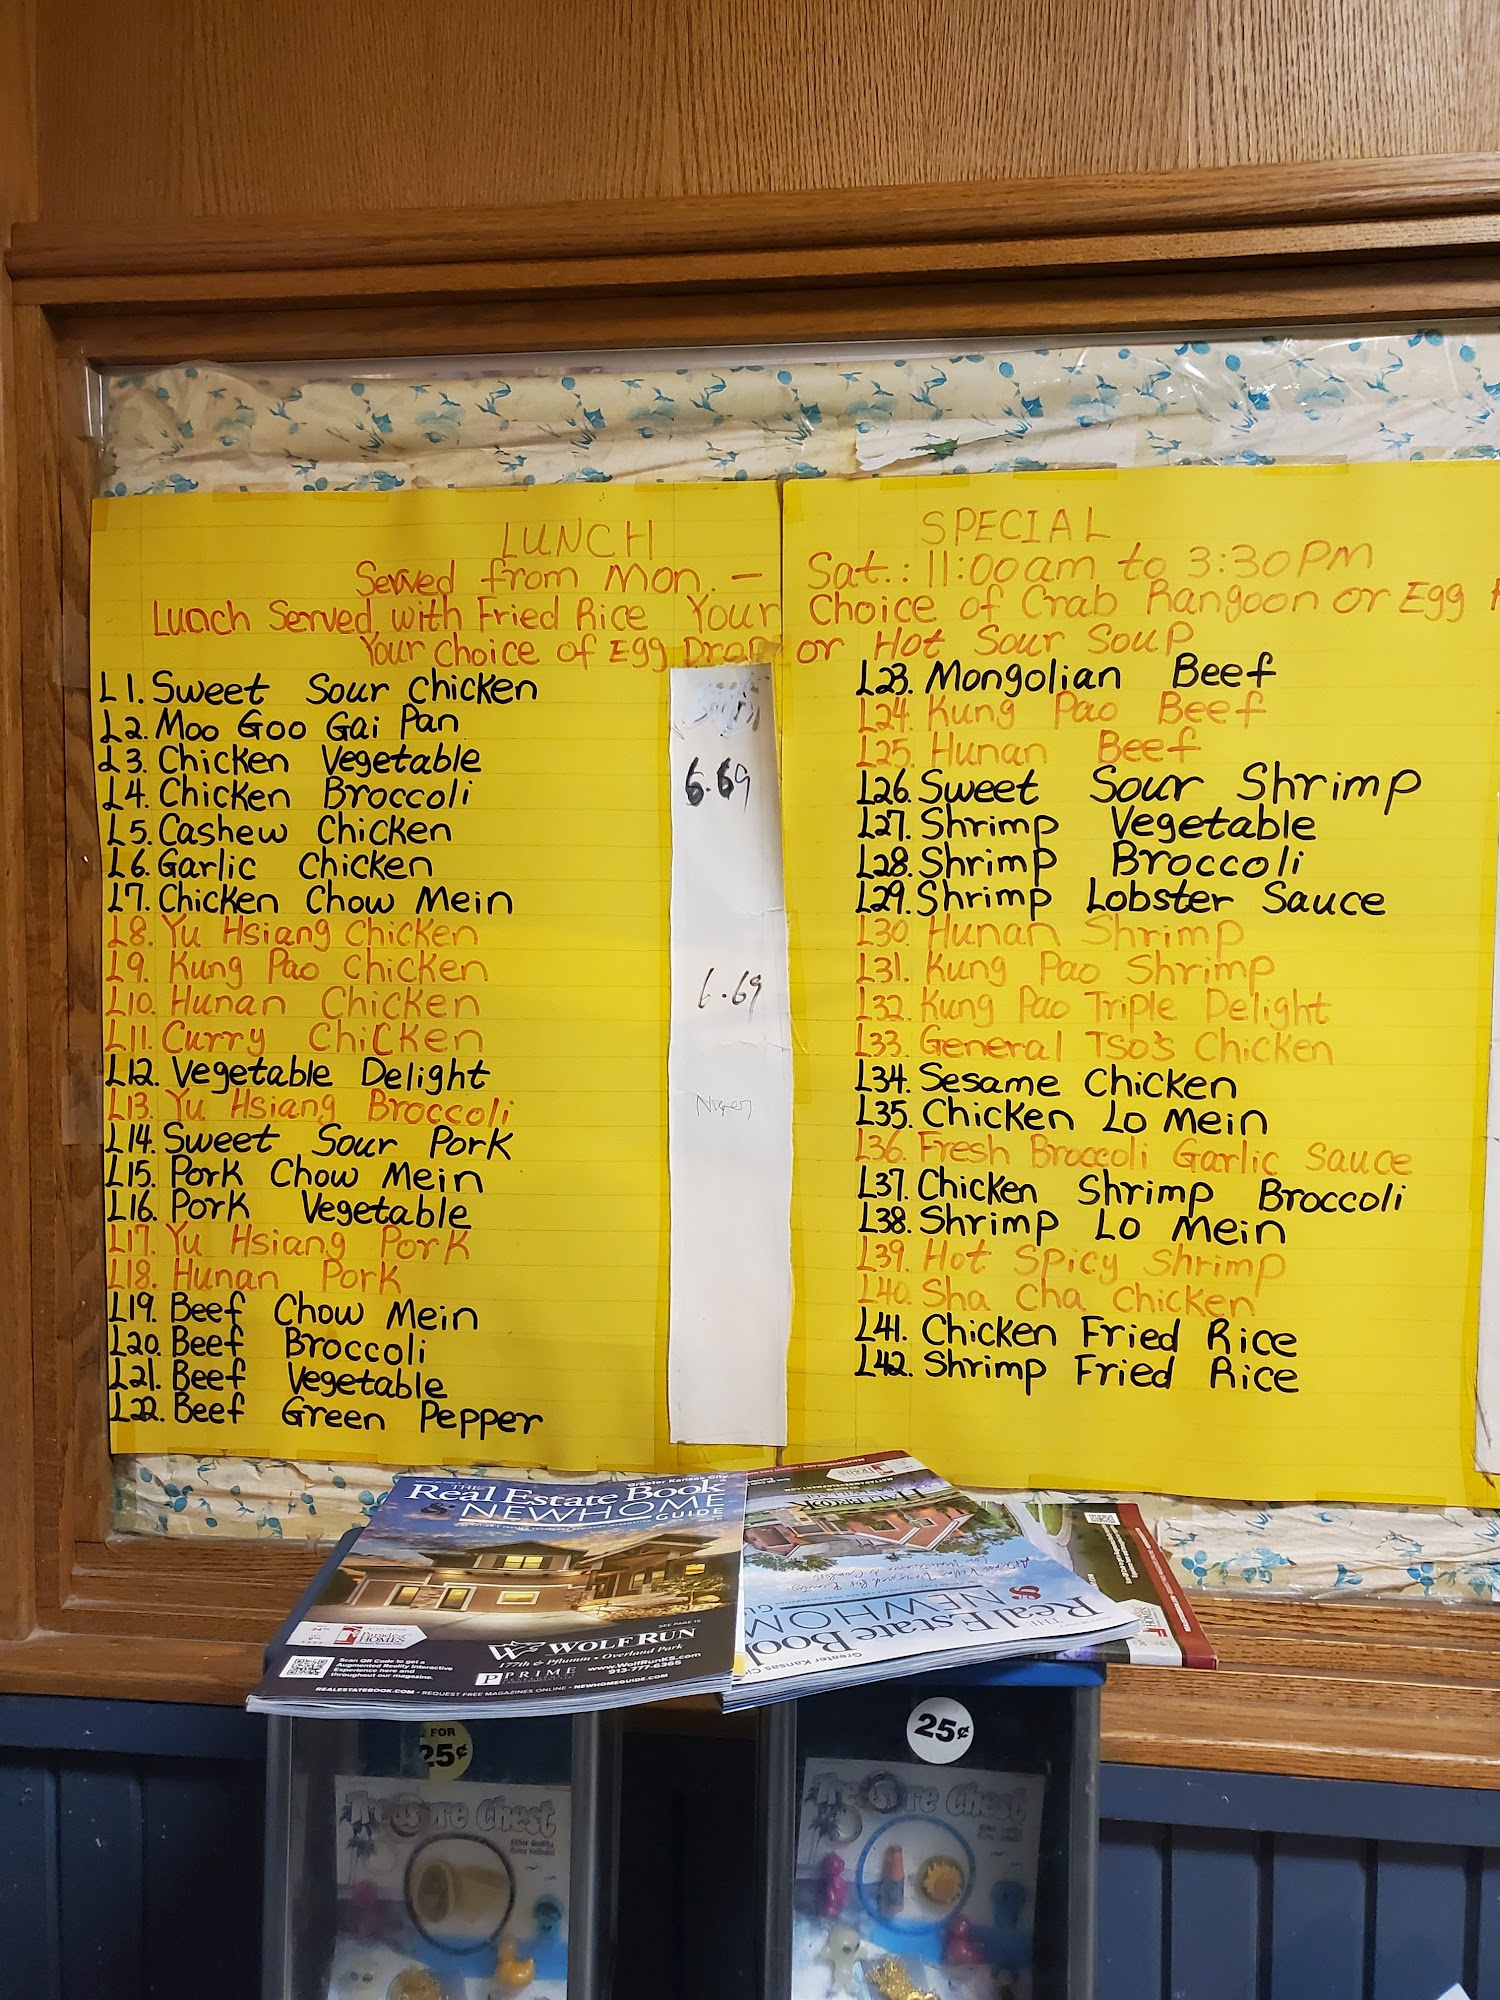 LUNCH SPECIAL
Served from Mon. — Sat.: 11:00am to 3:30PM
Lunch Served with Fried Rice Your Choice of Crab Rangoon or Egg
Your Choice of Egg Drop or Hot Sour Soup
L1. Sweet Sour Chicken
L2. Moo Goo Gai Pan
L3. Chicken Vegetable
L4. Chicken Broccoli
L5. Cashew Chicken
L6. Garlic Chicken
L7. Chicken Chow Mein
L8. Yu Hsiang Chicken
L9. Kung Pao Chicken
L10. Hunan Chicken
L11. Curry Chicken
L12. Vegetable Delight
L13. Yu Hsiang Broccoli
L14. Sweet Sour Pork
L15. Pork Chow Mein
L16. Pork Vegetable
L17. Yu Hsiang Pork
L18. Hunan Pork
L19. Beef Chow Mein
L20. Beef Broccoli
L21. Beef Vegetable
L22. Beef Green Pepper
6.69
6.69
L23. Mongolian Beef
L24. Kung Pao Beef
L25. Hunan Beef
L26. Sweet Sour Shrimp
L27. Shrimp Vegetable
L28. Shrimp Broccoli
L29. Shrimp Lobster Sauce
L30. Hunan Shrimp
L31. Kung Pao Shrimp
L32. Kung Pao Triple Delight
L33. General Tso's Chicken
L34. Sesame Chicken
L35. Chicken Lo Mein
L36. Fresh Broccoli Garlic Sauce
L37. Chicken Shrimp Broccoli
L38. Shrimp Lo Mein
L39. Hot Spicy Shrimp
L40. Sha Cha Chicken
L41. Chicken Fried Rice
L42. Shrimp Fried Rice
Greater Kansas City
THE Real Estate Book
& NEWHOME
GUIDE
SEE PAGE 15
WOLF RUN
177th & Pflumm • Overland Park
www.WolfRunKS.com
913-777-6365
PRIME
Parade of HOMES
Scan QR Code to get a
Augmented Reality Interactive
Experience here and
throughout our magazine.
REALESTATEBOOK.COM • REQUEST FREE MAGAZINES ONLINE • NEWHOMEGUIDE.COM
HALLBROOK
THE
Real Estate Book
& NEWHOME
Greater Kansas City
FOR
25¢
Treasure Chest
25¢
Treasure Chest